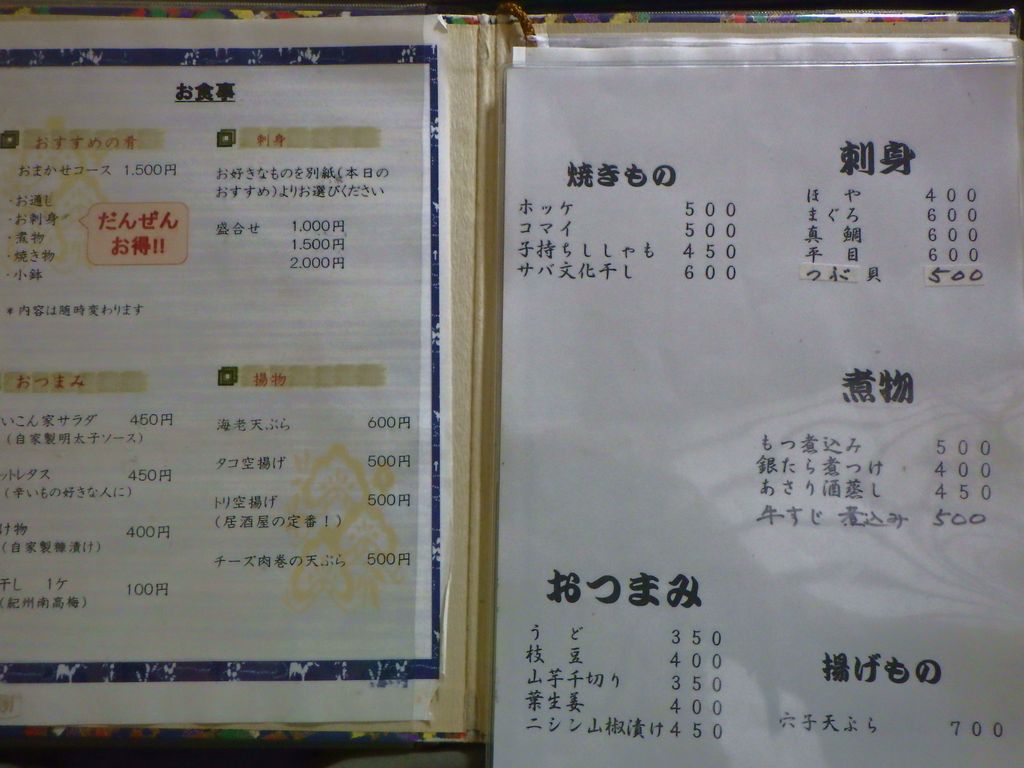 お食事
おすすめの肴
おまかせコース 1.500円
・お通し
・お刺身
・煮物
・焼き物
・小鉢
だんぜん
お得!!
*内容は随時変わります
刺身
お好きなものを別紙(本日の
おすすめ)よりお選びください
盛合せ 1.000円
1.500円
2.000円
おつまみ
いこん家サラダ 450円
(自家製明太子ソース)
ットレタス 450円
(辛いもの好きな人に)
け物 400円
(自家製糠漬け)
干し 1ケ 100円
(紀州南高梅)
揚物
海老天ぷら 600円
タコ空揚げ 500円
トリ空揚げ 500円
(居酒屋の定番!)
チーズ肉巻の天ぷら 500円
焼きもの
ホッケ 500
コマイ 500
子持ちししゃも 450
サバ文化干し 600
刺身
ほや 400
まぐろ 600
真鯛 600
平目 600
つぶ貝 500
煮物
もつ煮込み 500
銀たら煮つけ 400
あさり酒蒸し 450
牛すじ煮込み 500
おつまみ
うど 350
枝豆 400
山芋千切り 350
葉生姜 400
ニシン山椒漬け 450
揚げもの
穴子天ぷら 700